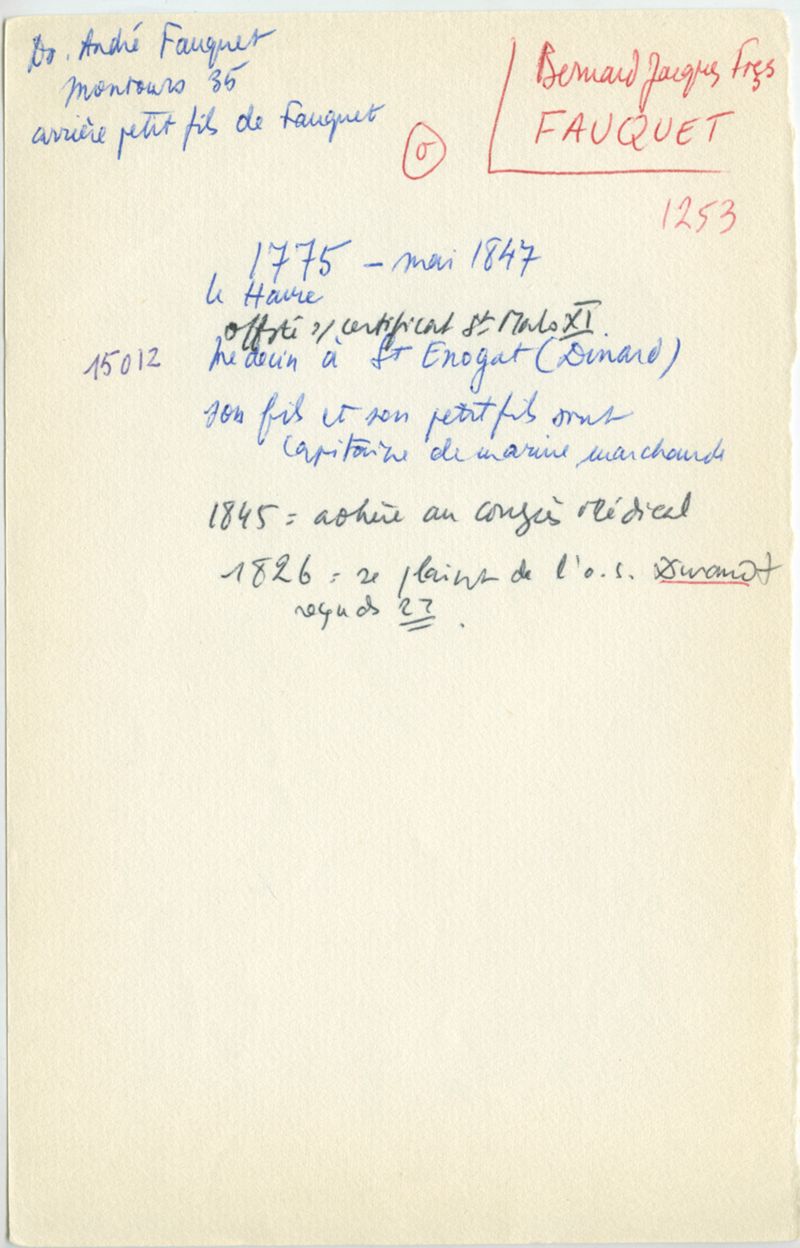 Dr. André Fauquet
Montours 35
arrière petit fils de Fauquet
Bernard Jacques Frçs
FAUQUET
1253
1775 – mai 1847
le Havre
certificat St Malo XI.
15012
médecin à St Enogat (Dinard)
son fils et son petit fils sont
capitaine de marine marchande
1845 = adhère au congrès Médical
1826 = se plaint de l'o.s. Durand
22.